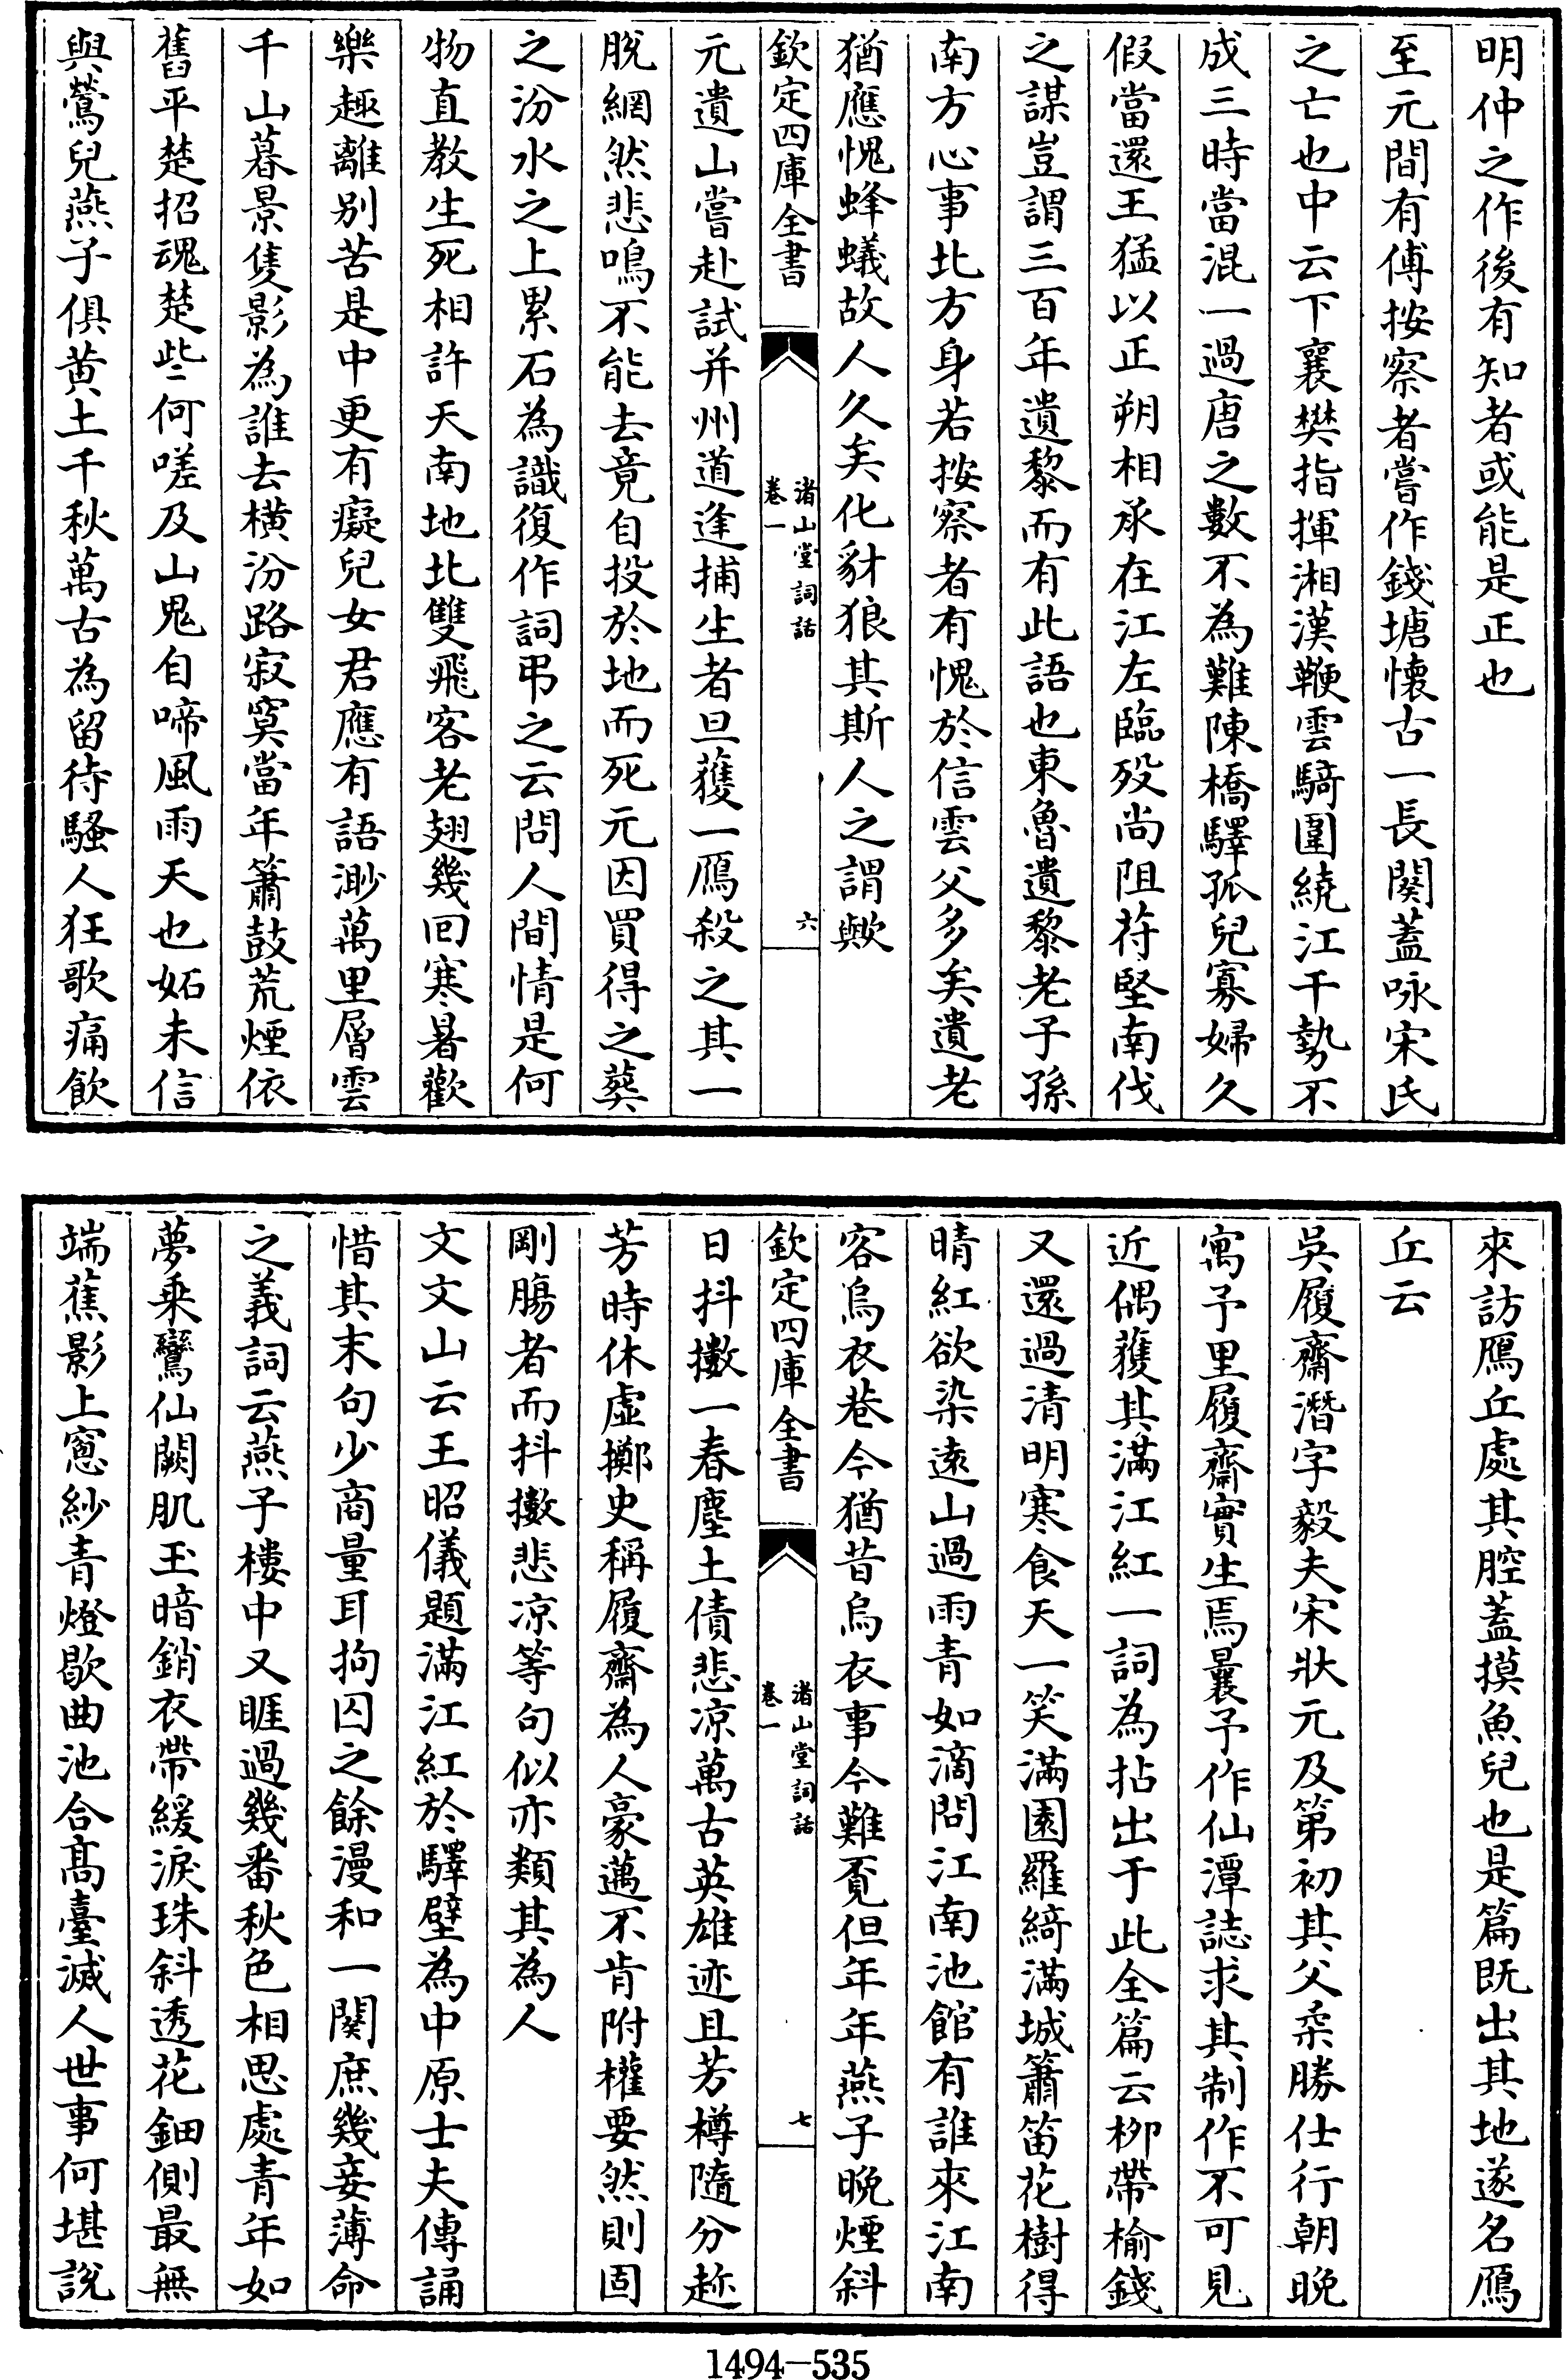 明仲之作後有知者或能是正也
至元間有傅按察者嘗作錢塘懷古一長闋蓋咏宋氏
之亡也中云下襄樊指揮湘漢鞭雲騎圍繞江干勢不
成三時當混一過唐之數不為難陳橋驛孤兒寡婦久
假當還王猛以正朔相承在江左臨歿尚阻苻堅南伐
之謀豈謂三百年遺黎而有此語也東魯遺黎老子孫
南方心事北方身若按察者有愧於信雲父多矣遺老
猶應愧蜂蟻故人久矣化豺狼其斯人之謂歟
欽定四庫全書
渚山堂詞話
卷一
六
元遺山嘗赴試并州道逢捕生者旦獲一鴈殺之其一
脫網然悲鳴不能去竟自投於地而死元因買得之葬
之汾水之上累石為識復作詞弔之云問人間情是何
物直教生死相許天南地北雙飛客老翅幾回寒暑歡
樂趣離別苦是中更有癡兒女君應有語渺萬里層雲
千山暮景隻影為誰去橫汾路寂寞當年簫鼓荒煙依
舊平楚招魂楚些何嗟及山鬼自啼風雨天也妬未信
與鶯兒燕子俱黄土千秋萬古為留待騷人狂歌痛飲
來訪鴈丘處其腔蓋摸魚兒也是篇既出其地遂名鴈
丘云
吳履齋潛字毅夫宋狀元及第初其父柔勝仕行朝晚
寓予里履齋實生焉曩予作仙潭誌求其制作不可見
近偶獲其滿江紅一詞為拈出于此全篇云栁帶榆錢
又還過清明寒食天一笑滿園羅綺滿城簫笛花樹得
晴紅欲染遠山過雨青如滴問江南池館有誰來江南
容烏衣巷今猶昔烏衣事今難覔但年年燕子晚煙斜
欽定四庫全書
渚山堂詞話
卷一
七
日抖擻一春塵土債悲凉萬古英雄迹且芳樽隨分趂
芳時休虛擲史稱履齋為人豪邁不肯附權要然則固
剛腸者而抖擻悲凉等句似亦類其為人
文文山云王昭儀題滿江紅於驛壁為中原士夫傳誦
惜其末句少商量耳拘囚之餘漫和一闋庶幾妾薄命
之義詞云燕子樓中又睚過幾番秋色相思處青年如
夢乘鸞仙闕肌玉暗銷衣帶緩淚珠斜透花鈿側最無
端蕉影上窻紗青燈歇曲池合髙臺滅人世事何堪說
1494—535